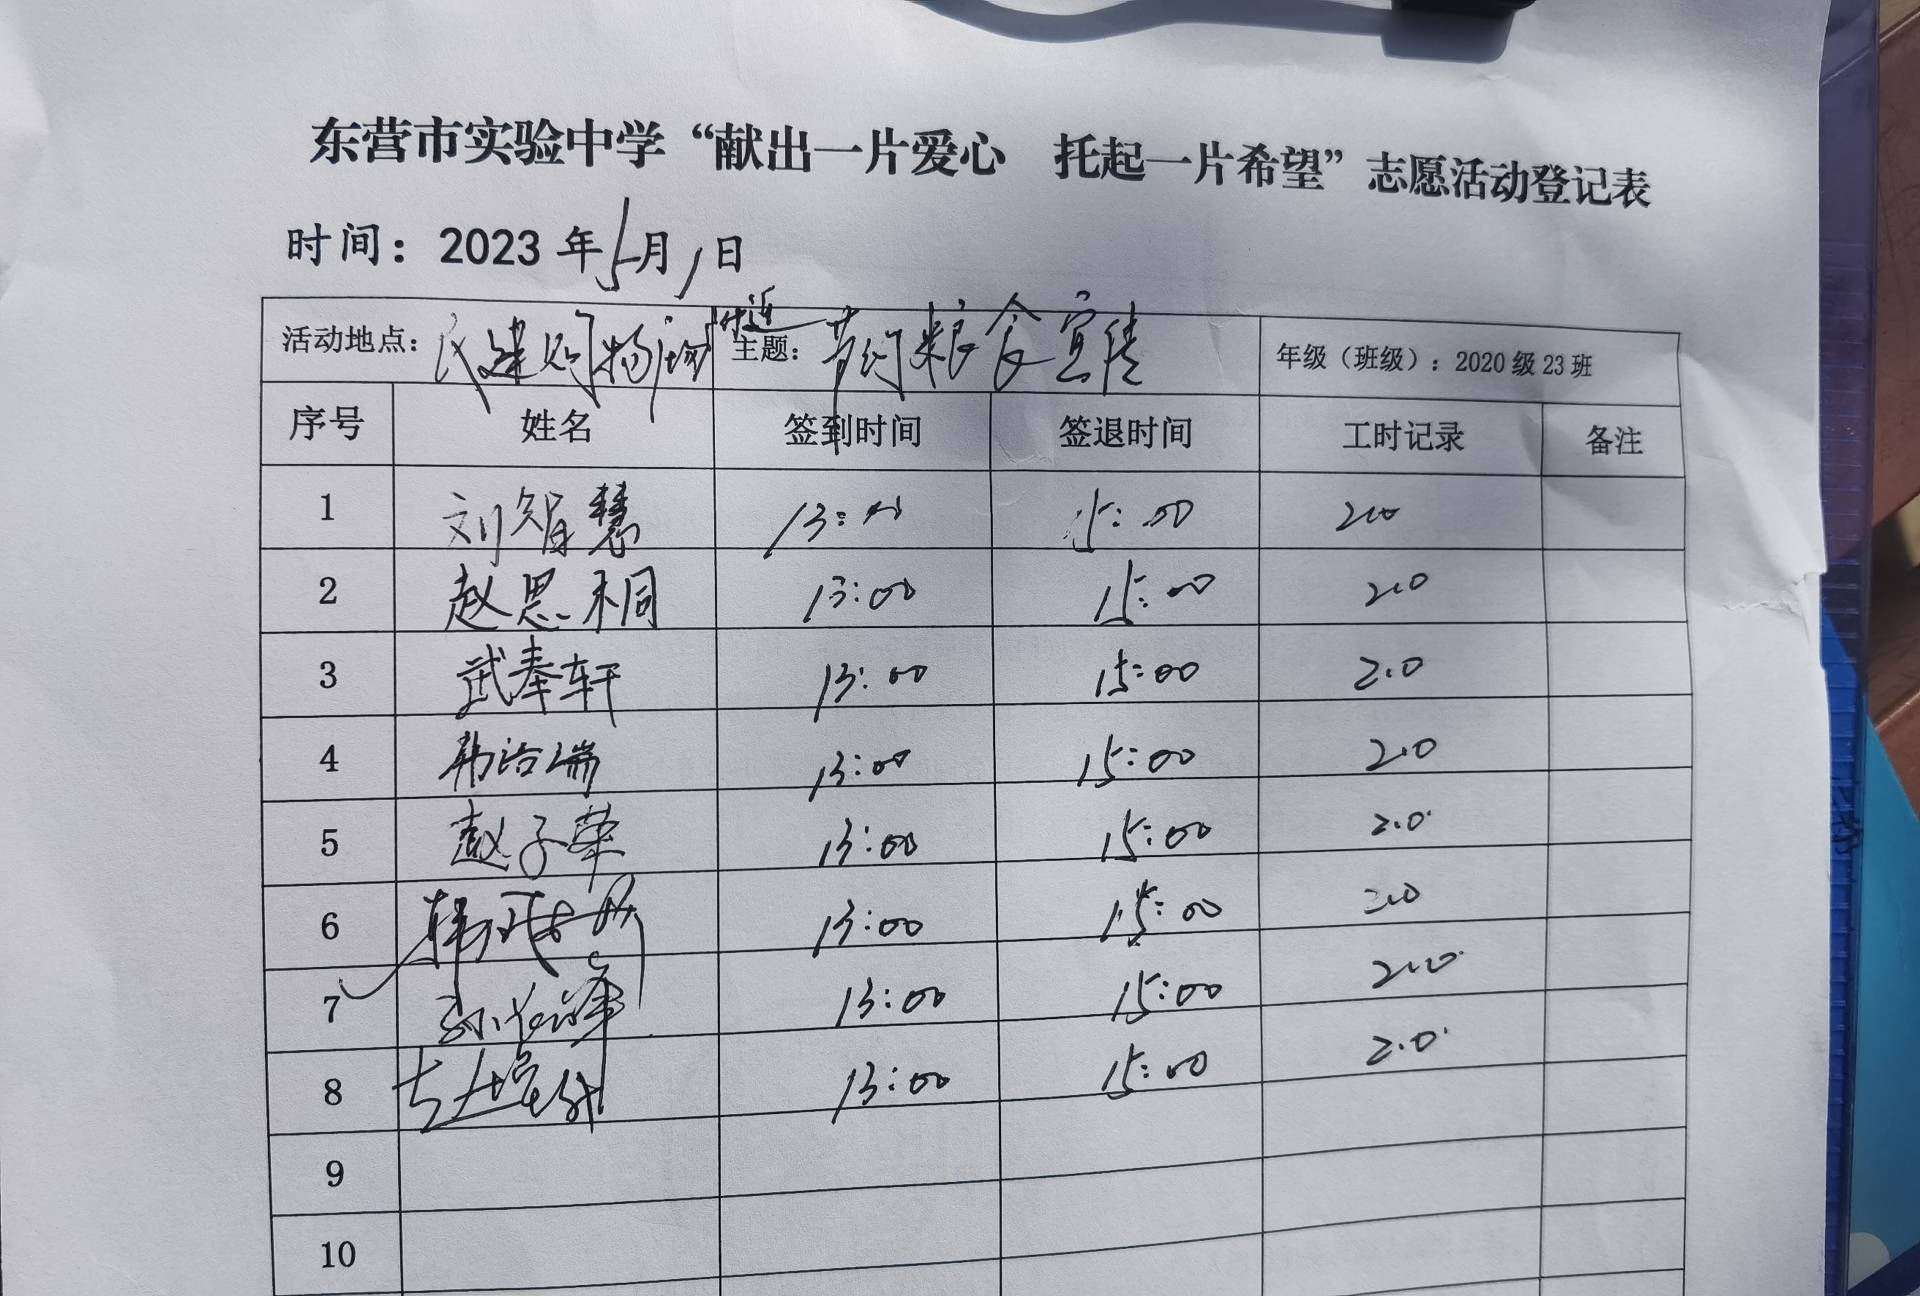 东营市实验中学“献出一片爱心 托起一片希望”志愿活动登记表
时间：2023年5月1日
活动地点：民建购物广场附近 主题：节约粮食宣传 年级（班级）：2020级23班
序号 姓名 签到时间 签退时间 工时记录 备注
1 刘智慧 13:00 15:00 2.0
2 赵思桐 13:00 15:00 2.0
3 武奉轩 13:00 15:00 2.0
4 韩洽瑞 13:00 15:00 2.0
5 赵子荦 13:00 15:00 2.0
6 韩 13:00 15:00 2.0
7 孙 13:00 15:00 2.0
8 13:00 15:00 2.0
9
10